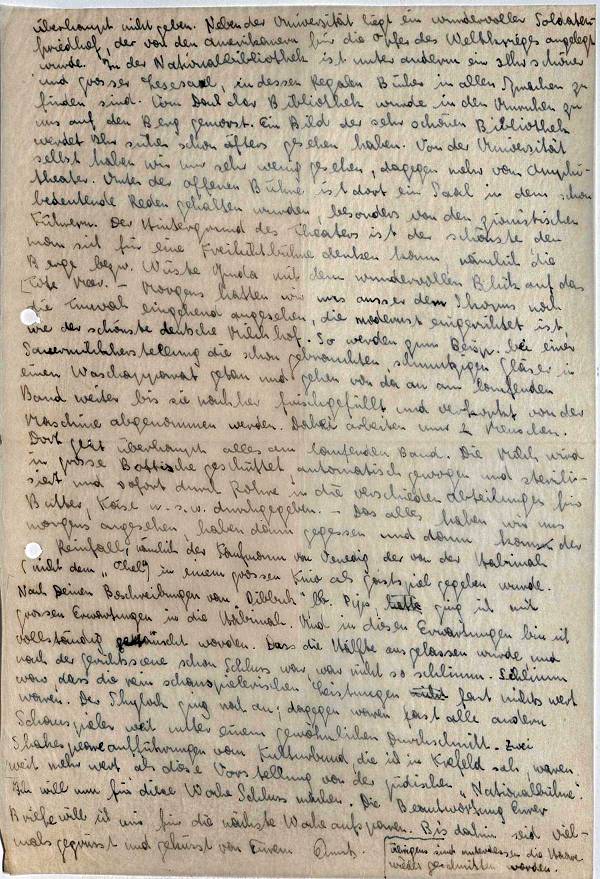 überhaupt nicht geben. Neben der Universität liegt ein wundervoller Soldaten-
friedhof, der von den Amerikanern für die Opfer des Weltkrieges angelegt
wurde. In der Nationalbibliothek ist unter anderem ein sehr schöner
und grosser Lesesaal, in dessen Regalen Bücher in allen Sprachen zu
finden sind. Vom Dach der Bibliothek wurde in den Unruhen zu
uns auf den Berg . Ein Bild der sehr schönen Bibliothek
werdet Ihr sicher schon öfters gesehen haben. Von der Universität
selbst haben wir nur sehr wenig gesehen, dagegen mehr vom Amphi-
theater. Unter der offenen Bühne ist dort ein Saal in dem schon
bedeutende Reden gehalten wurden, besonders von den zionistischen
Führern. Der Hintergrund des Theaters ist der schönste den
man sich für eine Freilichtbühne denken kann, nämlich die
Berge bezw. Wüste Juda mit dem wundervollen Blick auf das
Tote Meer. – Morgens hatten wir uns ausser dem noch
die Tnuvah eingehend angesehen, die modernst eingerichtet ist,
wie der schönste deutsche Milchhof. So werden zum Beisp. bei einer
Sauermilchherstellung die schon gebrauchten, schmutzigen Gläser in
einen Waschapparat getan und gehen von da an am laufenden
Band weiter bis sie nachher frischgefüllt und verkorkt von der
Maschine abgenommen werden. Dabei arbeiten nur 2 Menschen.
Dort geht überhaupt alles am laufenden Band. Die Milch wird
in grosse Bottiche geschüttet automatisch gewogen und sterili-
siert und sofort durch Rohre in die verschieden Abteilungen für
Butter, Käse u.s.w. durchgegeben. – Das alles haben wir uns
morgens angesehen, haben dann gegessen und dann kam der
Reinfall, nämlich der Kaufmann von Venedig der von der Habimah
(nicht dem „Ohel“) in einem grossen Kino als Gastspiel gegeben wurde.
Nach Deinen Beschreibungen vom „Dibbuk“ lb. Pips, ging ich mit
grossen Erwartungen in die Habimah. Und in diesen Erwartungen bin ich
vollständig getäuscht worden. Dass die Hälfte ausgelassen wurde, und
nach der Gerichtsscene schon Schluss war, war nicht so schlimm. Schlimm
war dass die rein schauspielerischen Leistungen fast nichts wert
waren. Der Shylock ging noch an; dagegen waren fast alle andern
Schauspieler weit unter einem gewöhnlichen Durchschnitt. Zwei
Shakespeareaufführungen vom Kulturbund, die ich in Krefeld sah, waren
weit mehr wert als diese Vorstellung von der jüdischen „Nationalbühne“.
Ich will nun für diese Woche Schluss machen. Die Beantwortung Eurer
Briefe will ich mir für die nächste Woche aufsparen. Bis dahin seid viel-
mals gegrüsst und geküsst von Eurem
Übrigens sind unterdessen die Haare
wieder geschnitten worden.